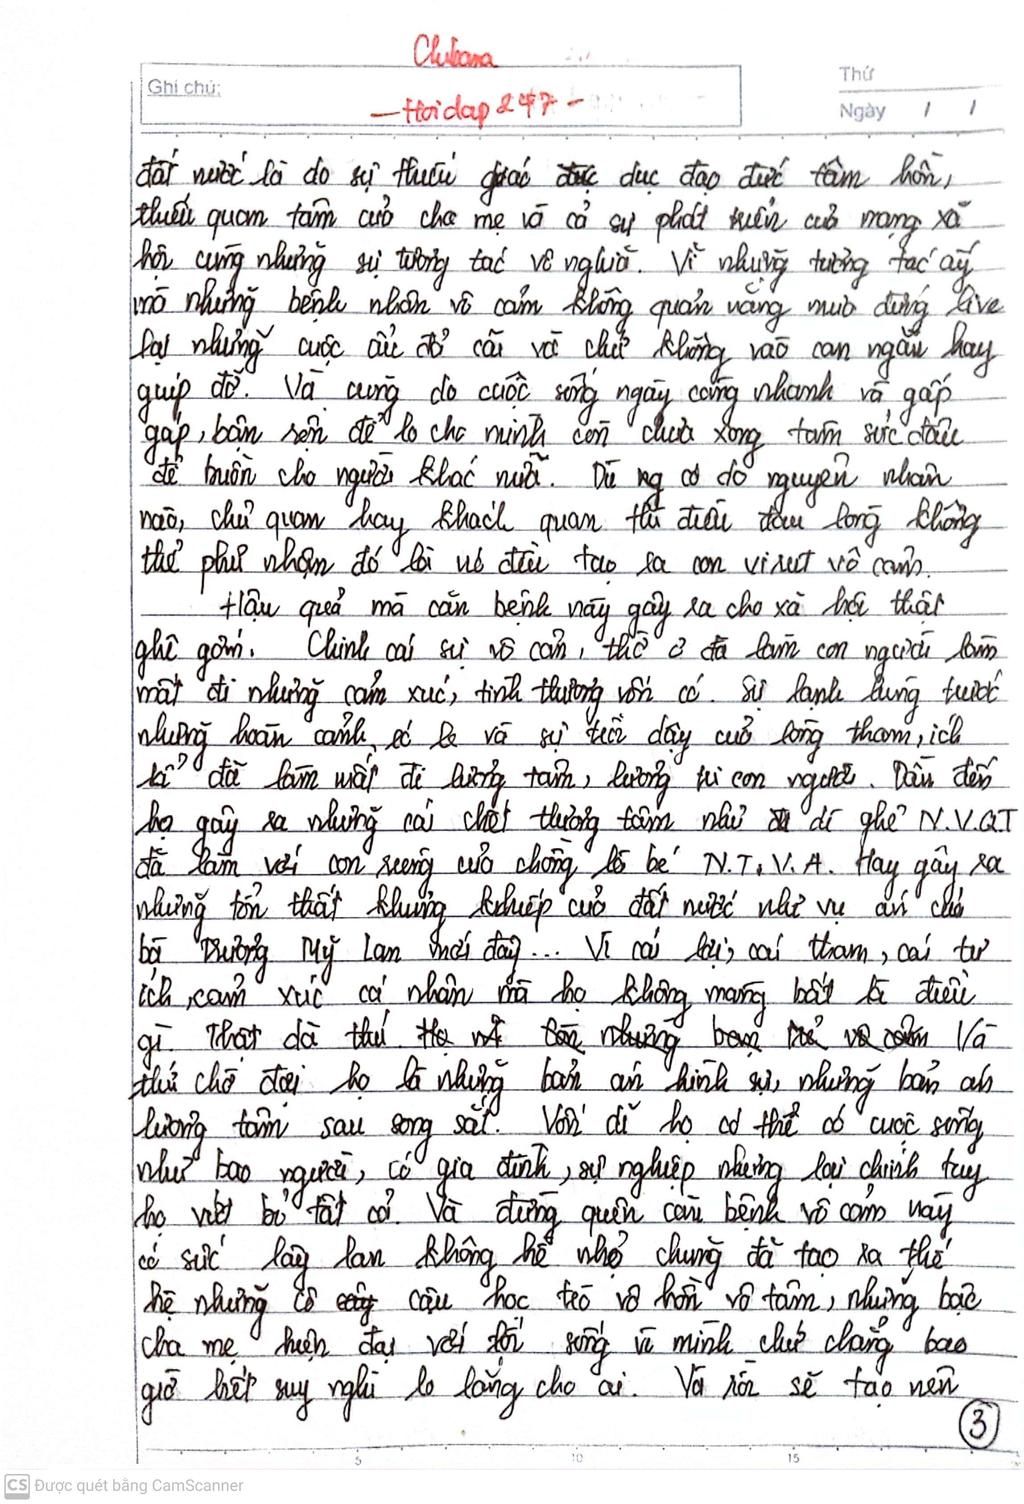 Chibana
Ghi chú:
Thứ
- Hoidap 247 -
Ngày / /
đất nước là do sự thiếu giáo dục đạo đức tâm hồn,
thiếu quan tâm cuả cha mẹ và cả sự phát triển cuả mạng xã
hội cùng những sự tương tác vô nghiã. Vì những tương tác ấy
mà những bệnh nhân vô cảm không quản nắng mưa đứng live
lại những cuộc ẩu đả cãi vã chứ không vào can ngăn hay
giúp đỡ. Và cũng do cuộc sống ngày càng nhanh và gấp
gáp, bận rộn để lo cho mình còn chưa xong tâm sức đâu
để buồn cho người khác nữa. Dù có do nguyên nhân
nào, chủ quan hay khách quan thì điều đau lòng không
thể phủ nhận đó là nó đều tạo ra con virut vô cảm.
Hậu quả mà căn bệnh này gây ra cho xã hội thật
ghê gớm. Chính cái sự vô cảm, thờ ơ đã làm con người làm
mất đi những cảm xúc, tình thương vốn có. Sự lạnh lùng trước
những hoàn cảnh, và sự trỗi dậy cuả lòng tham, ích
kỉ đã làm mất đi lương tâm, lương tri con người. Dẫn đến
họ gây ra những cái chết thương tâm như dì ghẻ N.V.Q.T
đã làm với con riêng cuả chồng là bé N.T.V.A. Hay gây ra
những tổn thất khủng khiếp cuả đất nước như vụ án của
bà Trương Mỹ Lan mới đây... Vì cái lợi, cái tham, cái tư
ích, cảm xúc cá nhân mà họ không màng bất kì điều
gì. Thật dã thú. Và
thứ chờ đợi họ là những bản án hình sự, những bản án
lương tâm sau song sắt. Vốn dĩ họ có thể có cuộc sống
như bao người, có gia đình, sự nghiệp nhưng lại chính tay
họ vứt bỏ tất cả. Và đừng quên căn bệnh vô cảm này
có sức lây lan không hề nhỏ chúng đã tạo ra thế
hệ những cô cậu học trò vô hồn vô tâm, những bậc
cha mẹ hiện đại với lối sống vì mình chứ chẳng bao
giờ hết suy nghĩ lo lắng cho ai. Và rồi sẽ tạo nên
3
5 10 15
CS Được quét bằng CamScanner